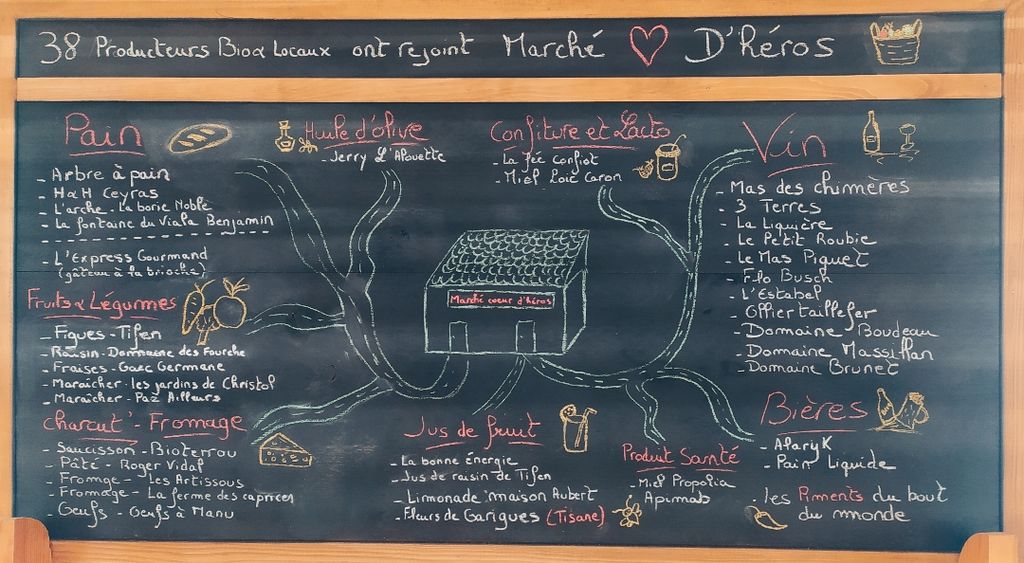 38 Producteurs Bio & Locaux ont rejoint Marché D'héros
Pain
- Arbre à pain
- H&H Ceyras
- L'arche - La borie Noble
- La fontaine du Viala Benjamin
- L'Express Gourmand
(gâteau à la brioche)
Huile d'olive
- Jerry L'Alouette
Confiture et Lacto
- La fée Confiot
- Miel Loïc Caron
Vin
- Mas des chimères
- 3 Terres
- La Liquière
- Le Petit Roubie
- Le Mas Piquet
- Flo Busch
- L'Estabel
- Ollier taillefer
- Domaine Boudeau
- Domaine Massillan
- Domaine Brunet
Marché coeur d'héros
Fruits & Légumes
- Figues - Tifen
- Raisin - Domaine des Fourche
- Fraises - Gaec Germane
- Maraicher - les jardins de Christol
- Maraicher - Paz Ailleurs
Charcut' - Fromage
- Saucisson - Bioterrou
- Pâté - Roger Vidal
- Fromge - Les Artissous
- Fromage - La ferme des caprices
- Oeufs - Oeufs à Manu
Jus de fruit
- La bonne énergie
- Jus de raisin de Tifen
- Limonade maison Aubert
- Fleurs de Garigues (Tisane)
Produit Santé
- Miel Propolia
Apimab
Bières
- Alaryk
- Pain Liquide
- Les Piments du bout
du monde